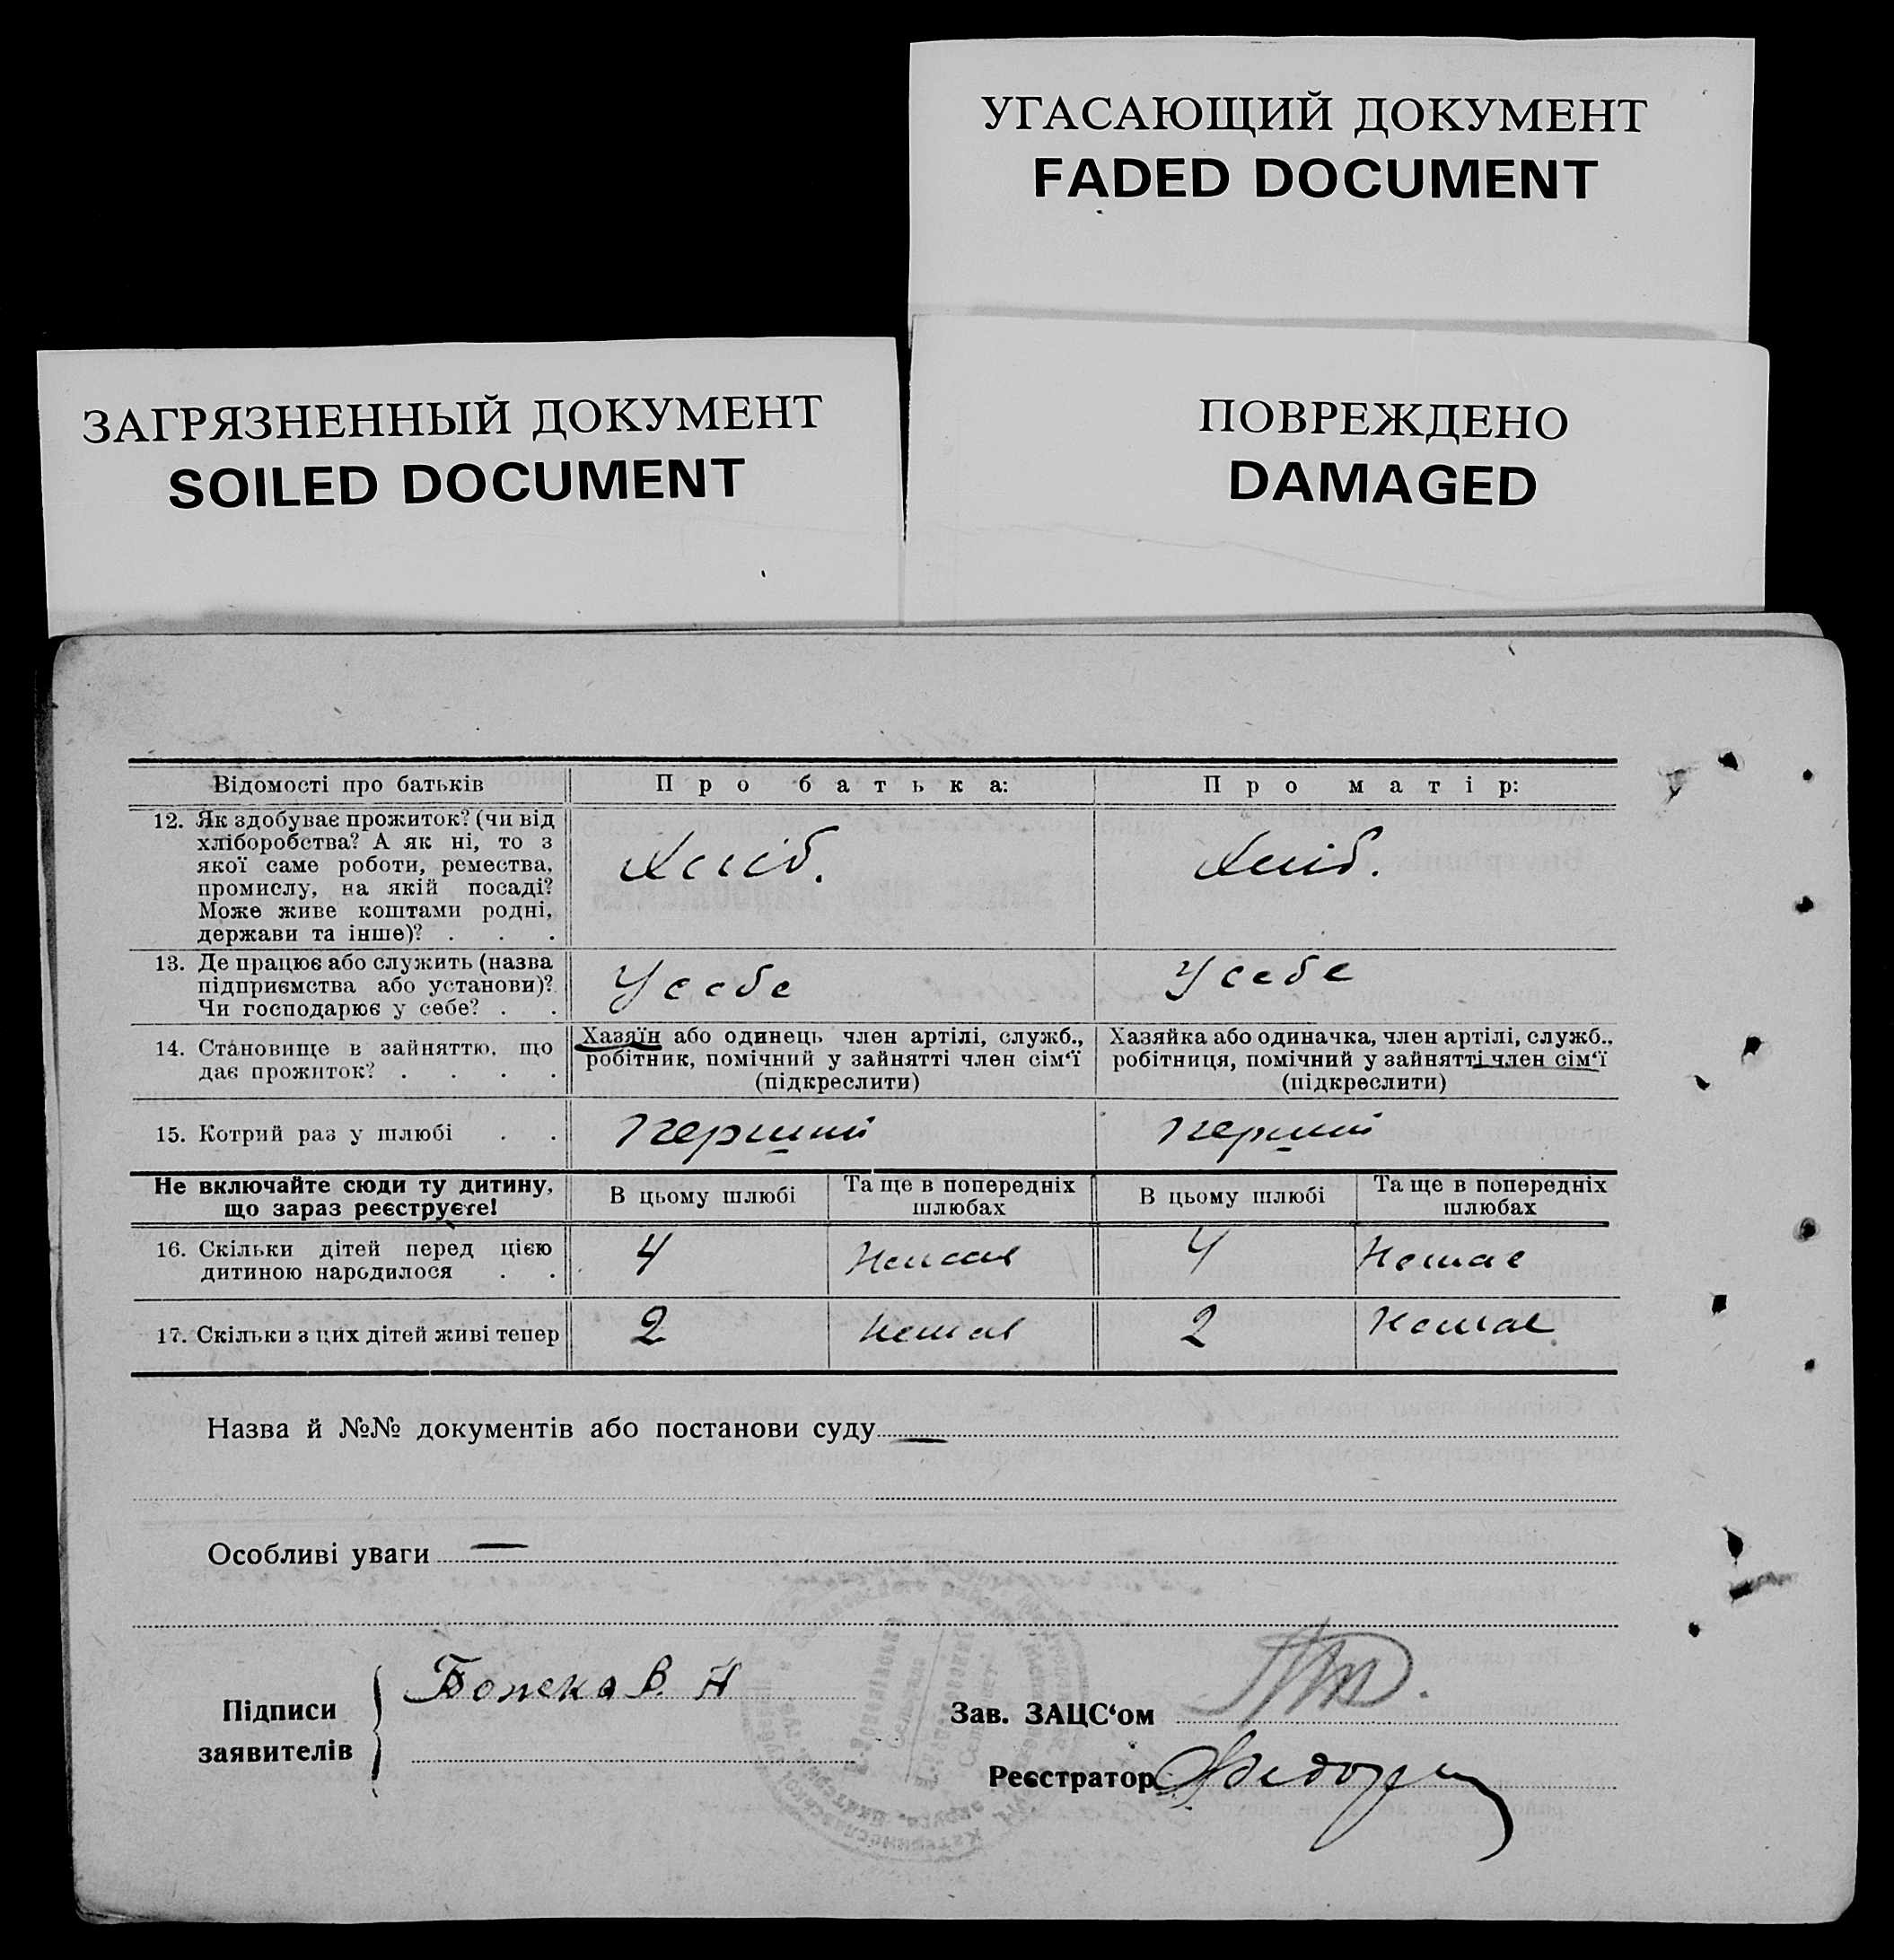 УГАСАЮЩИЙ ДОКУМЕНТ
FADED DOCUMENT
ЗАГРЯЗНЕННЫЙ ДОКУМЕНТ
SOILED DOCUMENT
ПОВРЕЖДЕНО
DAMAGED
Відомості про батьків
Про батька:
Про матір:
12. Як здобуває прожиток? (чи від
хліборобства? А як ні, то з
якої саме роботи, ремества,
промислу, на якій посаді?
Може живе коштами родні,
держави та інше)? . . .
Хліб.
Хліб.
13. Де працює або служить (назва
підприємства або установи)?
Чи господарює у себе? . .
У себе
У себе
14. Становище в зайняттю, що
дає прожиток? . . . .
Хазяїн або одинець член артілі, служб.,
робітник, помічний у зайнятті член сім‘ї
(підкреслити)
Хазяйка або одиначка, член артілі, служб.,
робітниця, помічний у зайнятті член сім‘ї
(підкреслити)
15. Котрий раз у шлюбі . .
Перший
Перший
Не включайте сюди ту дитину,
що зараз реєструєте!
В цьому шлюбі
Та ще в попередніх
шлюбах
В цьому шлюбі
Та ще в попередніх
шлюбах
16. Скільки дітей перед цією
дитиною народилося . .
4
Немає
4
Немає
17. Скільки з цих дітей живі тепер
2
Немає
2
Немає
Назва й №№ документів або постанови суду —
Особливі уваги —
Підписи
заявителів
В. Н
Зав. ЗАЦС‘ом
Реєстратор